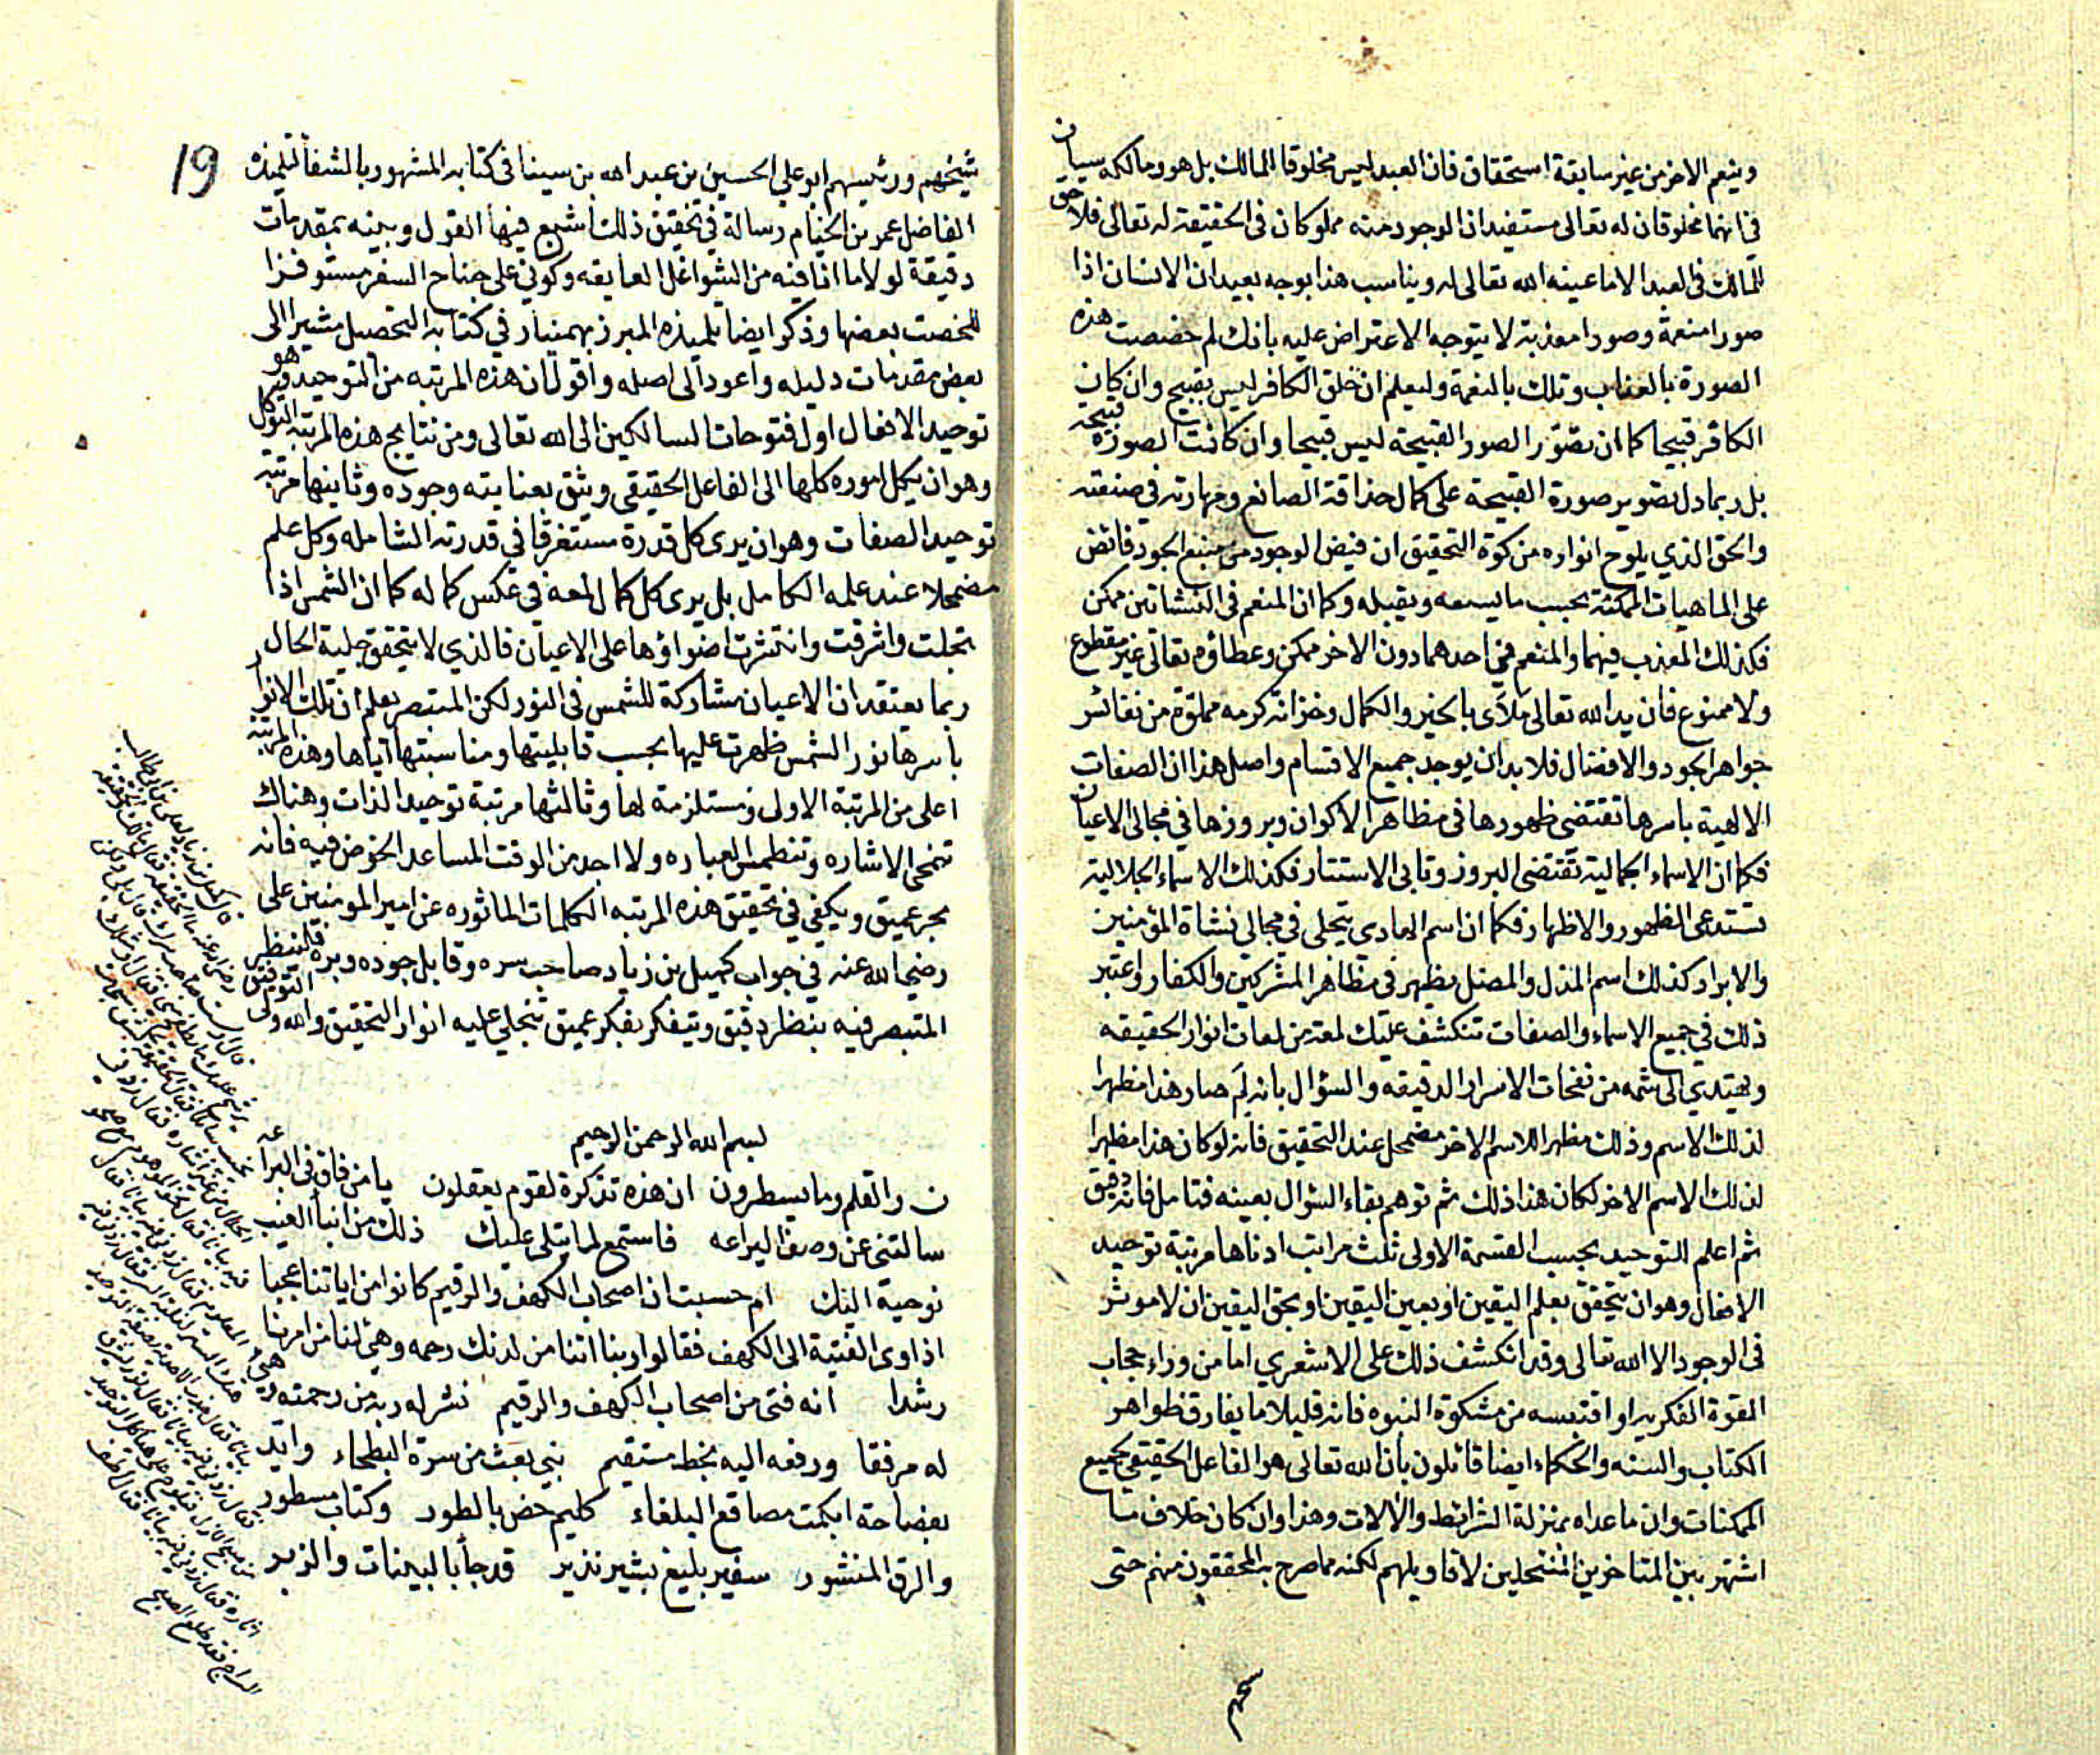 وينعم الاخر من غير سابقة استحقاق فان العبد ليس مخلوقا للمالك بل هو ومالكه سيان
في انهما مخلوقان له تعالى مستفيدان الوجود منه مملوكان في الحقيقة له تعالى فلا حق
للمالك في العبد الا ما عينه الله تعالى له ويناسب هذا بوجه بعيد ان الانسان اذا
صور صورا منعمة وصورا معذبة لا يتوجه الاعتراض عليه بانك لم خصصت هذه
الصورة بالعذاب وتلك بالنعمة وليعلم ان خلق الكافر ليس بقبيح وان كان
الكافر قبيحا كما ان تصوّر الصور القبيحة ليس قبيحا وان كانت الصورة قبيحة
بل ربما دل تصوير صورة القبيحة على كمال حذاقة الصانع ومهارته في صنعته
والحق الذي يلوح انواره من كوة التحقيق ان فيض الوجود من منبع الجود فائض
على الماهيات الممكنة بحسب ما يسعه ويقبله وكما ان المنعم في النشاتين ممكن
فكذلك المعذب فيهما والمنعم في احدهما دون الاخر ممكن وعطاؤه تعالى غير مقطوع
ولا ممنوع فان يد الله تعالى ملآى بالخير والكمال وخزانة كرمه مملوّة من نفائس
جواهر الجود والافضال فلا بد ان يوجد جميع الاقسام واصل هذا ان الصفات
الالهية باسرها تقتضي ظهورها في مظاهر الاكوان وبروزها في مجالى الاعيان
فكما ان الاسماء الجمالية تقتضى البروز وتابى الاستتار فكذلك الاسماء الجلالية
تستدعى الظهور والاظهار فكما ان اسم الهادي يتجلى في مجالى نشاة المؤمنين
والابرار كذلك اسم المذل والمضل يظهر في مظاهر المشركين والكفار واعتبر
ذلك في جميع الاسماء والصفات تنكشف عليك لمعة من لمعات انوار الحقيقه
وتهتدي الى شمه من نفحات الاسرار الدقيقه والسؤال بانه لم صار هذا مظهرا
لذلك الاسم وذلك مظهرا للاسم الاخر مضمحل عند التحقيق فانه لو كان هذا مظهرا
لذلك الاسم الاخر لكان هذا ذلك ثم توهم بقاء السؤال بعينه فتامل فانه دقيق
ثم اعلم التوحيد بحسب القسمة الاولى ثلث مراتب ادناها مرتبة توحيد
الافعال وهو ان يتحقق بعلم اليقين او بعين اليقين او بحق اليقين ان لا موثر
في الوجود الا الله تعالى وقد انكشف ذلك على الاشعري اما من وراء حجاب
القوة الفكرية او اقتبسه من مشكوة النبوه فانه قليلا ما يفارق ظواهر
الكتاب والسنه والحكماء ايضا قائلون بأن الله تعالى هو الفاعل الحقيقي لجميع
الممكنات وان ما عداه بمنزلة الشرائط والآلات وهذا وان كان خلاف ما
اشتهر بين المتاخرين المنتحلين لاقاويلهم لكنه مما صرح به المحققون منهم حتى
شيخهم
19
شيخهم ورئيسهم ابو على الحسين بن عبد الله بن سينا في كتابه المشهور بالشفا لتلميذه
الفاضل عمر بن الخيام رسالة في تحقيق ذلك اشبع فيها القول وبينه بمقدمات
دقيقة لولا ما انا فيه من الشواغل العايقه وكوني على جناح السفر مستوفزا
للخصت بعضها وذكر ايضا تلميذه المبرز بهمنيار في كتابه التحصيل مشيرا الى
بعض مقدمات دليله واعود الى اصله واقول ان هذه المرتبه من التوحيد هو
توحيد الافعال اول فتوحات السالكين الى الله تعالى ومن نتايج هذه المرتبة التوكل
وهو ان يكل اموره كلها الى الفاعل الحقيقي ويثق بعنايته وجوده وثانيها مرتبة
توحيد الصفات وهو ان يرى كل قدرة مستغرقا في قدرته الشامله وكل علم
مضمحلا عند علمه الكامل بل يرى كل كمال لمعة في عكس كماله كما ان الشمس اذا
تجلت واشرقت وانتشرت اضواؤها على الاعيان فالذي لا يتحقق جلية الحال
ربما يعتقد ان الاعيان مشاركة للشمس في النور لكن المتبصر يعلم ان تلك الانوار
باسرها نور الشمس ظهرت عليها بحسب قابليتها ومناسبتها اياها وهذه المرتبة
اعلى من المرتبة الاولى ومستلزمة لها وثالثها مرتبة توحيد الذات وهناك
تنمحى الاشاره وتنطمس العباره ولا اجد من الوقت المساعد الخوض فيه فانه
بحر عميق ويكفي في تحقيق هذه المرتبه الكلمات الماثوره عن امير المومنين على
رضي الله عنه في جواب كميل بن زياد صاحب سره وقابل جوده وبره فلينظر
المتبصر فيه بنظر دقيق ويتفكر بفكر عميق تنجلي عليه انوار التحقيق والله ولى التوفيق
بسم الله الرحمن الرحيم
ن والقلم وما يسطرون ان هذه تذكرة لقوم يعقلون يا من فاق في البراعه
سالتنى عن وصف اليراعه فاستمع لما يتلى عليك ذلك من انباء الغيب
نوحيه اليك ام حسبت ان اصحاب الكهف والرقيم كانوا من اياتنا عجبا
اذ اوى الفتية الى الكهف فقالوا ربنا اتنا من لدنك رحمه وهيئ لنا من امرنا
رشدا انه فتى من اصحاب الكهف والرقيم نشر له ربه من رحمته وهيئ
له مرفقا ورفعه اليه بخط مستقيم نبي بعث من سرة البطحاء وايد
بفصاحة ابكمت مصاقع البلغاء كليم خص بالطور وكتاب مسطور
والرق المنشور سفير بليغ بشير نذير قد جاء بالبينات والزبر